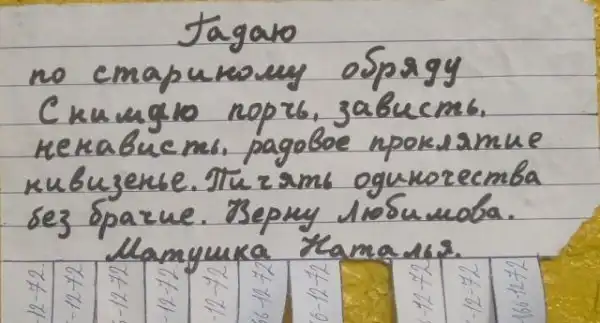 Гадаю
по стариному обряду
Снимаю порчь, зависть,
ненависть. радовое проклятие
нивизенье. Пичять одиночества
без брачие. Верну Любимова.
Матушка Наталья.
-12-72 -12-72 6-12-72 -12-72 -12-72 66-12-72 6-12-72 -12-72 -12-72 66-12-72